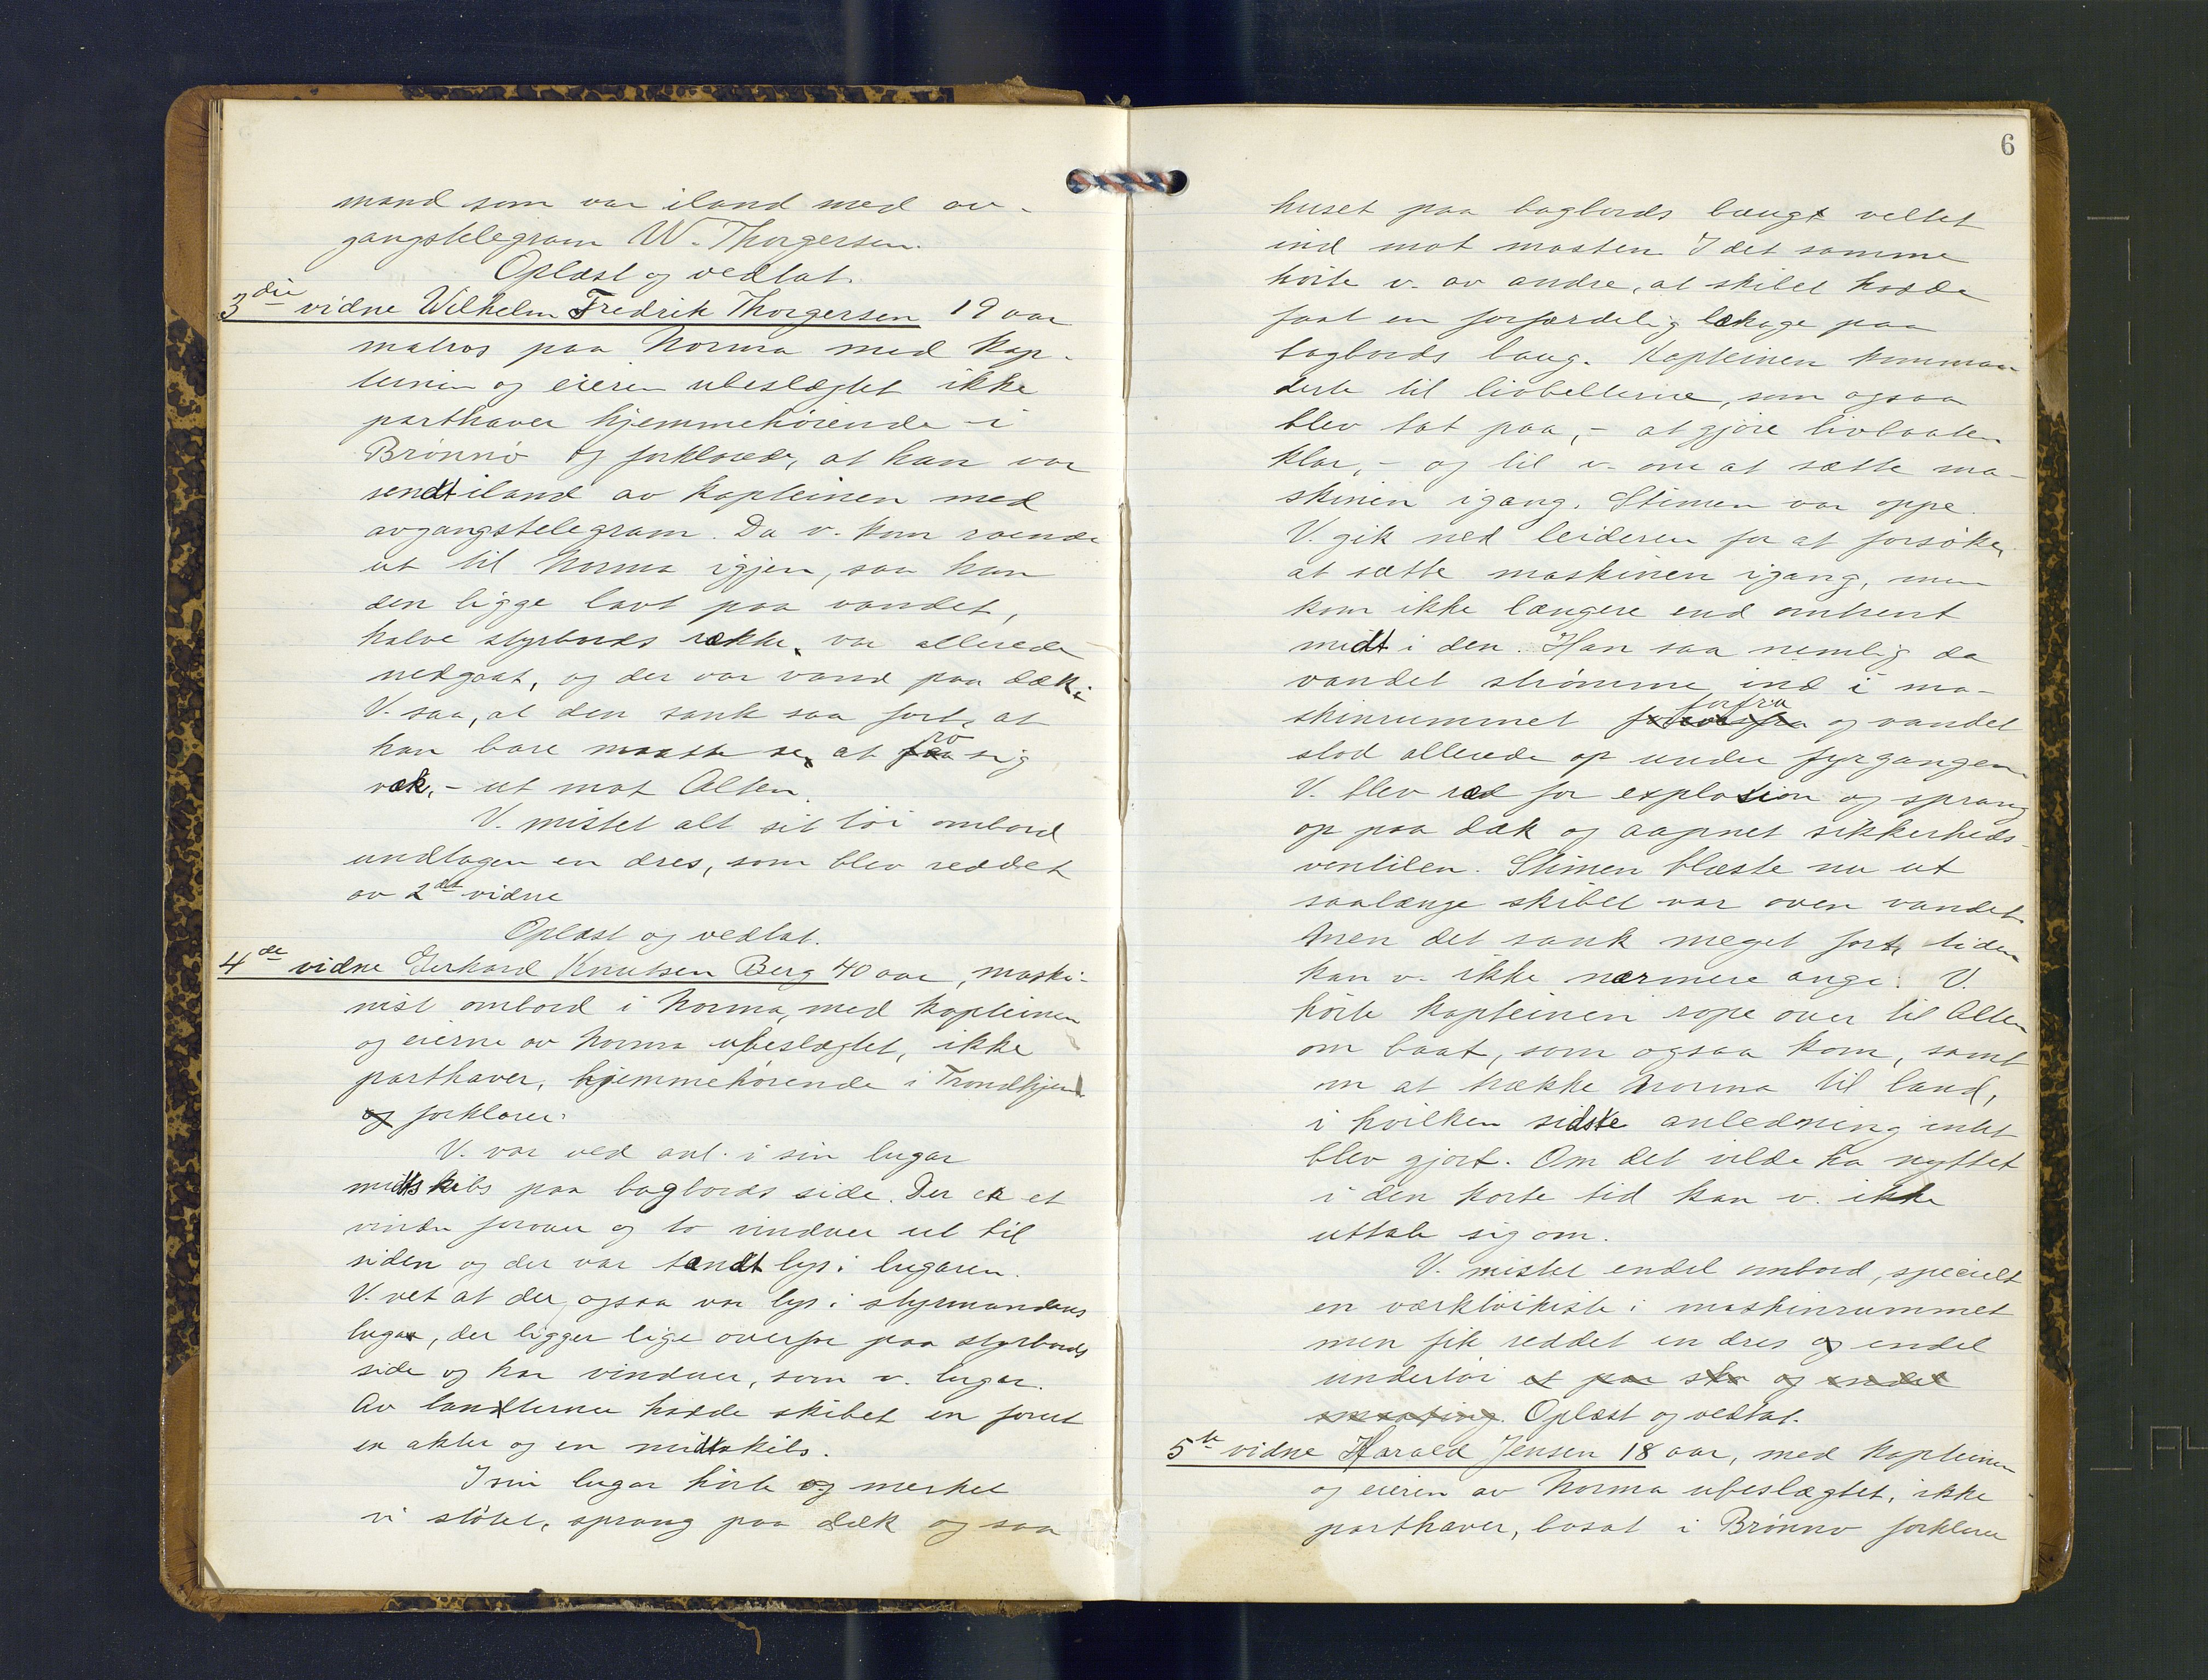 mand som var iland med av-
gangstelegram W. Thorgersen.
Oplæst og vedtat.
3die vidne Wilhelm Fredrik Thorgersen 19 aar
matros paa Norma med kap-
teinen og eieren ubeslægtet ikke
parthaver hjemmehörende i
Brönnö og forklarede, at han var
sendt iland av kapteinen med
avgangstelegram. Da v. kom roende
ut til Norma igjen, saa han
den ligge lavt paa vandet,
halve styrbords række var allerede
nedgaat, og der var vand paa dæk.
V. saa, at den sank saa fort, at
han bare maatte se at ro sig
væk, - ut mot Alten.
V. mistet alt sit töi ombord
undtagen en dres, som blev reddet
av 2det vidne
Oplæst og vedtat.
4de vidne Gerhard Knutsen Berg 40 aar, maski-
nist ombord i Norma, med kapteinen
og eierne av Norma ubeslægtet, ikke
parthaver, hjemmehörende i Trondhjem
og forklarer:
V. var ved ant. i sin lugar
midtskibs paa bagbords side. Der er et
vindu forover og to vinduer ut til
siden og der var tændt lys i lugaren.
V. vet at der ogsaa var lys i styrmandens
lugar, der ligger lige overfor paa styrbords
side og har vinduer, som v. lugar.
Av lanternerne hadde skibet en forut
en akter og en midtskibs.
I sin lugar hörte og merket
v. stötet, sprang paa dæk og saa
6
huset paa bagbords baug veltet
ind mot masten. I det samme
hörte v. av andre, at skibet hadde
faat en forfærdelig lækage paa
bagbords baug. Kapteinen komman-
derte til livbelterne, som ogsaa
blev tat paa, - at gjöre livbaaten
klar, - og til v. om at sætte ma-
skinen igang. Stimen var oppe.
V. gik ned leideren for at forsöke
at sætte maskinen igang, men
kom ikke længere end omtrent
midt i den. Han saa nemlig da
vandet strömme ind i ma-
skinrummet forfra og vandet
stod allerede op under fyrgangen.
V. blev ræd for explosion og sprang
op paa dæk og aapnet sikkerheds-
ventilen. Stimen blæste nu ut
saalænge skibet var oven vandet.
Men det sank meget fort, tiden
kan v. ikke nærmere angi. V.
hörte kapteinen rope over til Alten
om baat, som ogsaa kom, samt
om at trække Norma til land,
i hvilken sidste anledning intet
blev gjort. Om det vilde ha nyttet
i den korte tid kan v. ikke
uttale sig om.
V. mistet endel ombord, specielt
en værktöikiste i maskinrummet
men fik reddet en dres og endel
undertöi et par sko og endel
Oplæst og vedtat.
5te vidne Harald Jensen 18 aar, med kapteinen
og eieren av Norma ubeslægtet, ikke
parthaver, bosat i Brönnö forklarer